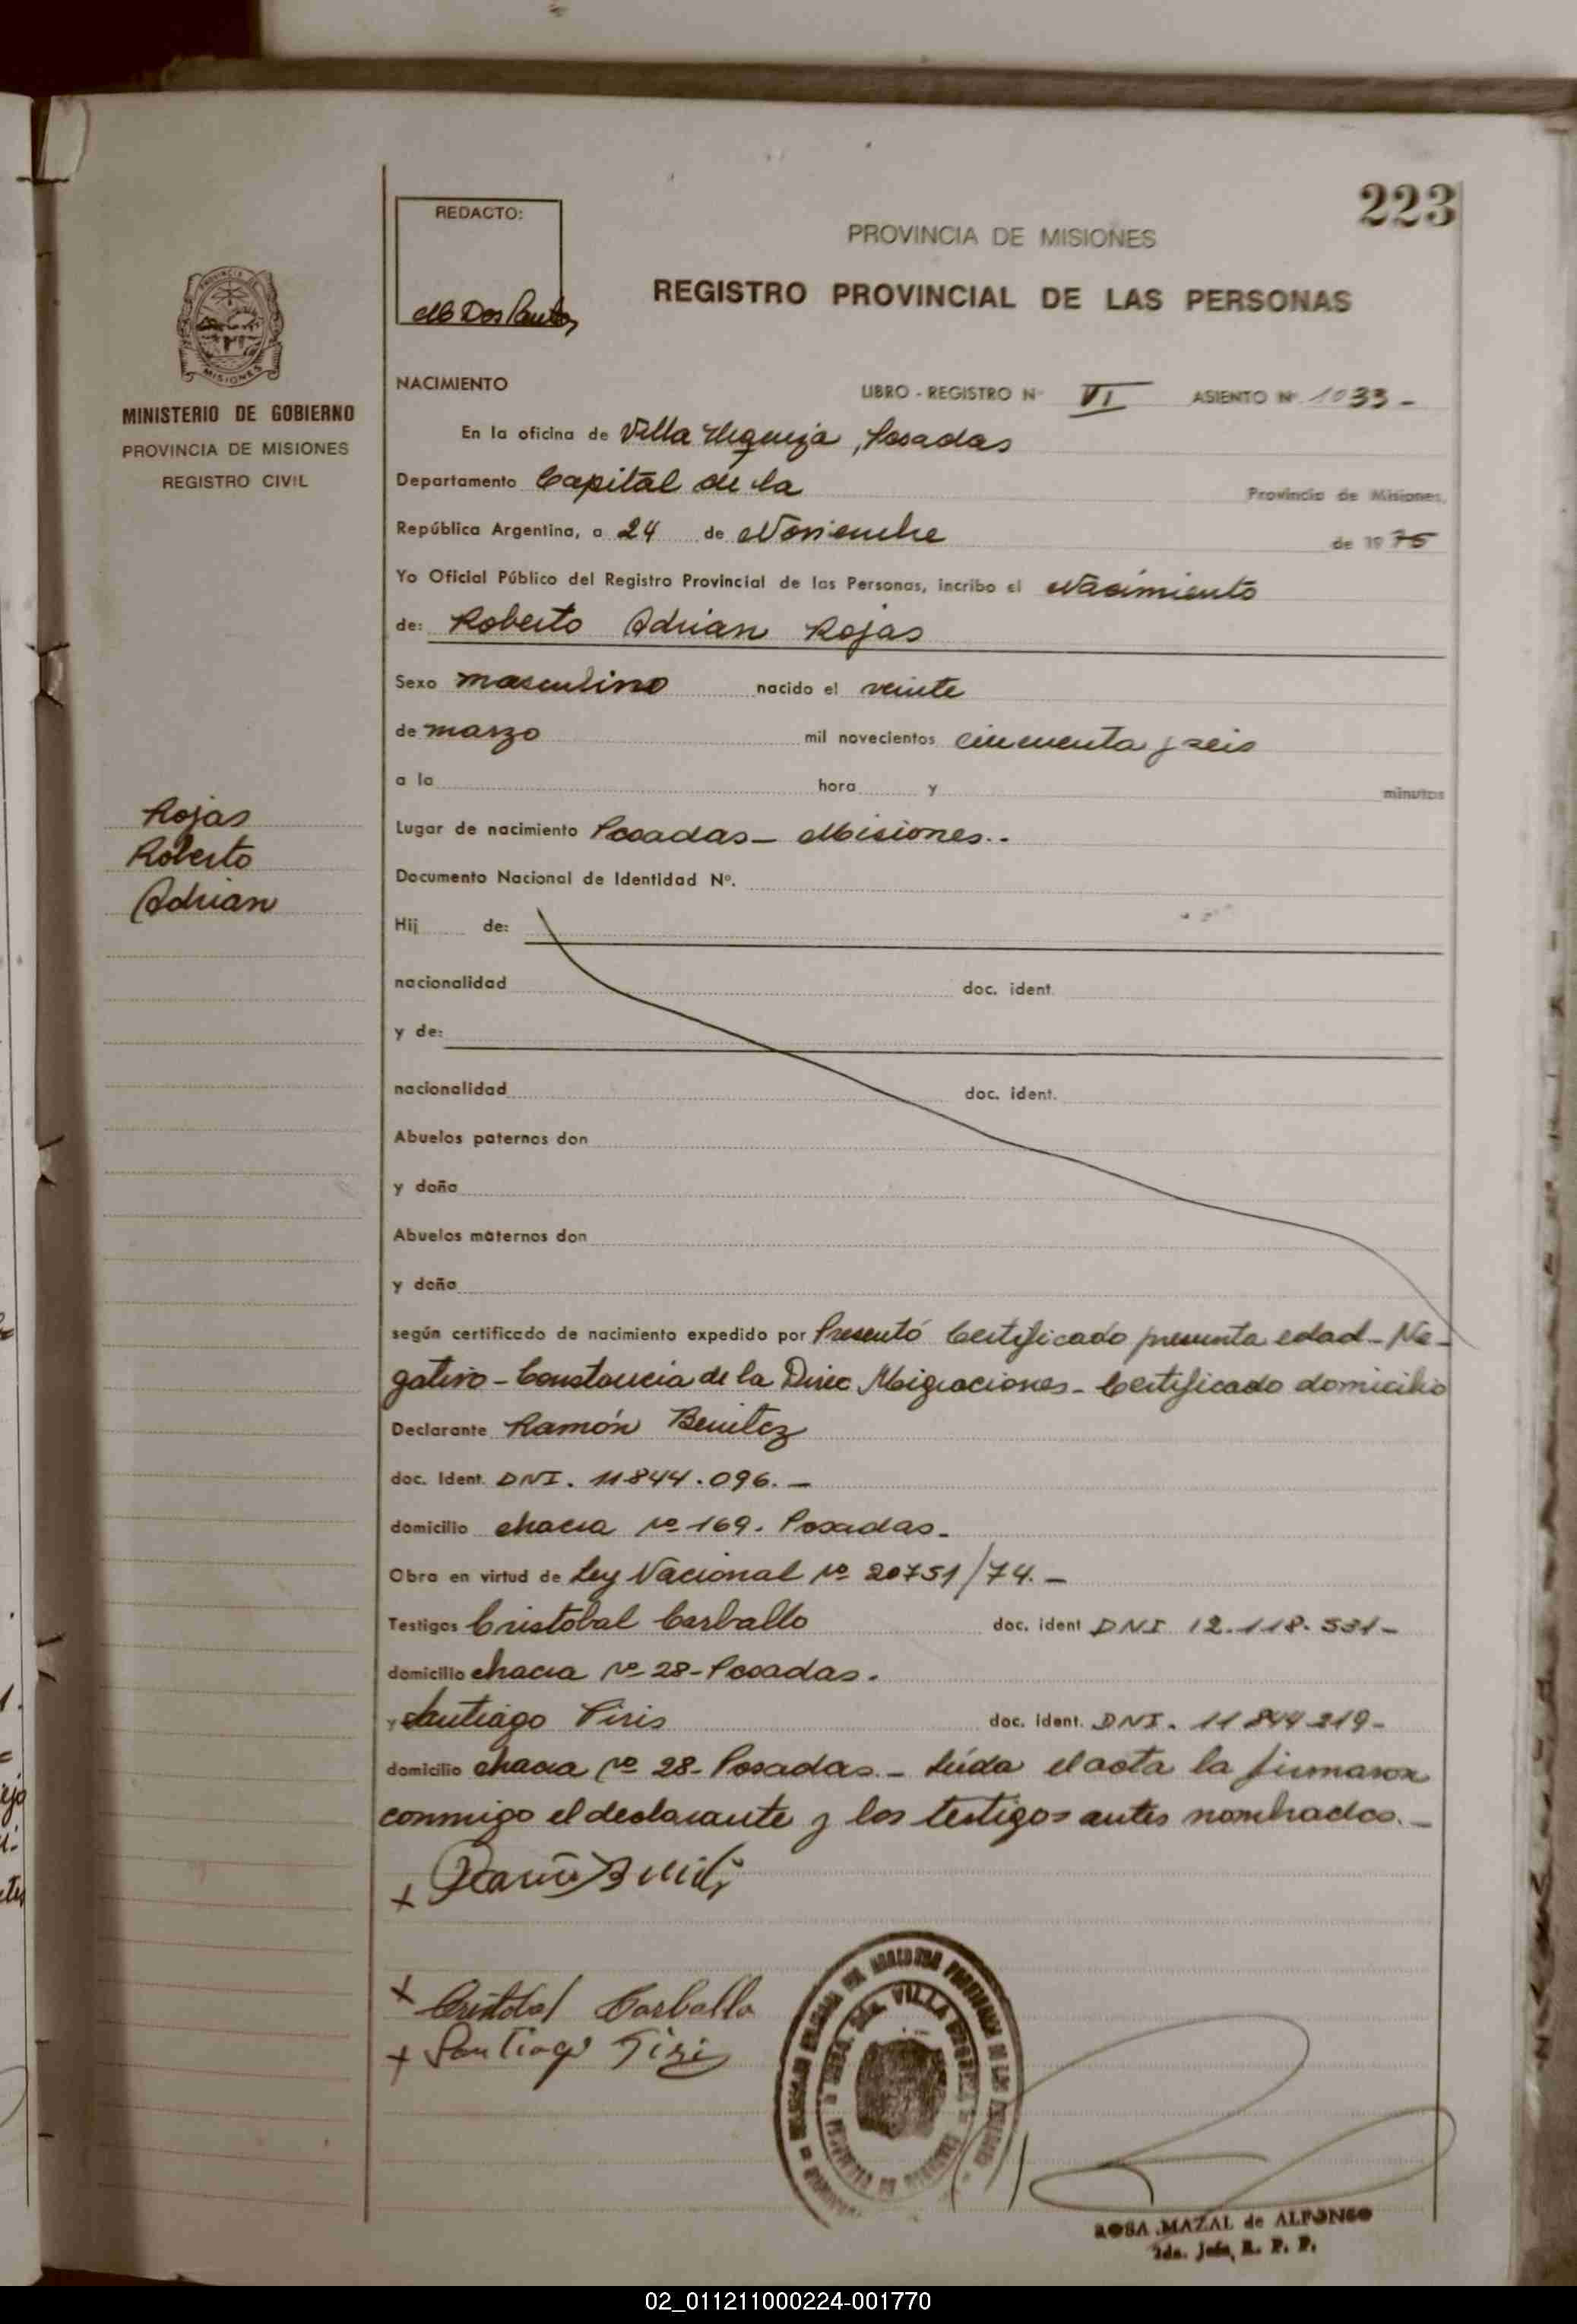 223
REDACTO:
M Dos Santos
PROVINCIA DE MISIONES
REGISTRO PROVINCIAL DE LAS PERSONAS
PROVINCIA DE
MISIONES
MINISTERIO DE GOBIERNO
PROVINCIA DE MISIONES
REGISTRO CIVIL
Rojas
Roberto
Adrian
NACIMIENTO
LIBRO - REGISTRO Nº VI ASIENTO Nº 1033 -
En la oficina de Villa Urquiza, Posadas
Departamento Capital de la Provincia de Misiones,
República Argentina, a 24 de Noviembre de 1975
Yo Oficial Público del Registro Provincial de las Personas, incribo el Nacimiento
de: Roberto Adrian Rojas
Sexo masculino nacido el veinte
de marzo mil novecientos cincuenta y seis
a la hora y minutos
Lugar de nacimiento Posadas - Misiones.-
Documento Nacional de Identidad Nº.
Hij de:
nacionalidad doc. ident.
y de:
nacionalidad doc. ident.
Abuelos paternos don
y doña
Abuelos maternos don
y doña
según certificado de nacimiento expedido por Presentó Certificado presunta edad - Ne-
gativo - Constancia de la Direc Migraciones - Certificado domicilio
Declarante Ramón Benitez
doc. Ident. DNI. 11844.096.-
domicilio chacra nº 169. Posadas.-
Obra en virtud de Ley Nacional nº 20751/74.-
Testigos Cristobal Carballo doc. ident DNI 12.118.531-
domicilio chacra nº 28 - Posadas.
y Santiago Piris doc. ident. DNI. 11844219-
domicilio chacra nº 28 - Posadas.- Leída el acta la firmaron
conmigo el declarante y los testigos antes nombrados.-
+ Ramón Benitez
+ Cristobal Carballo
+ Santiago Piris
VILLA URQUIZA
ROSA MAZAL de ALFONSO
2da. Jefa, R. P. P.
02_011211000224-001770